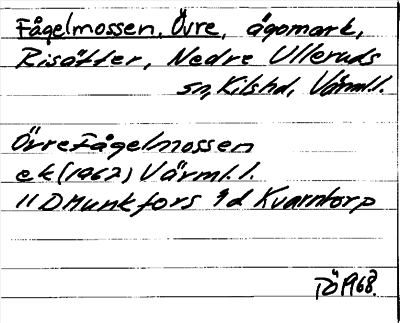 Fågelmossen, Övre, ägomark,
Risäter, Nedre Ulleruds
sn, Kils hd, Värml.l.
Övre Fågelmossen
ek (1962) Värml.l.
11 D Munkfors 9d Kvarntorp
TÖ 1968.